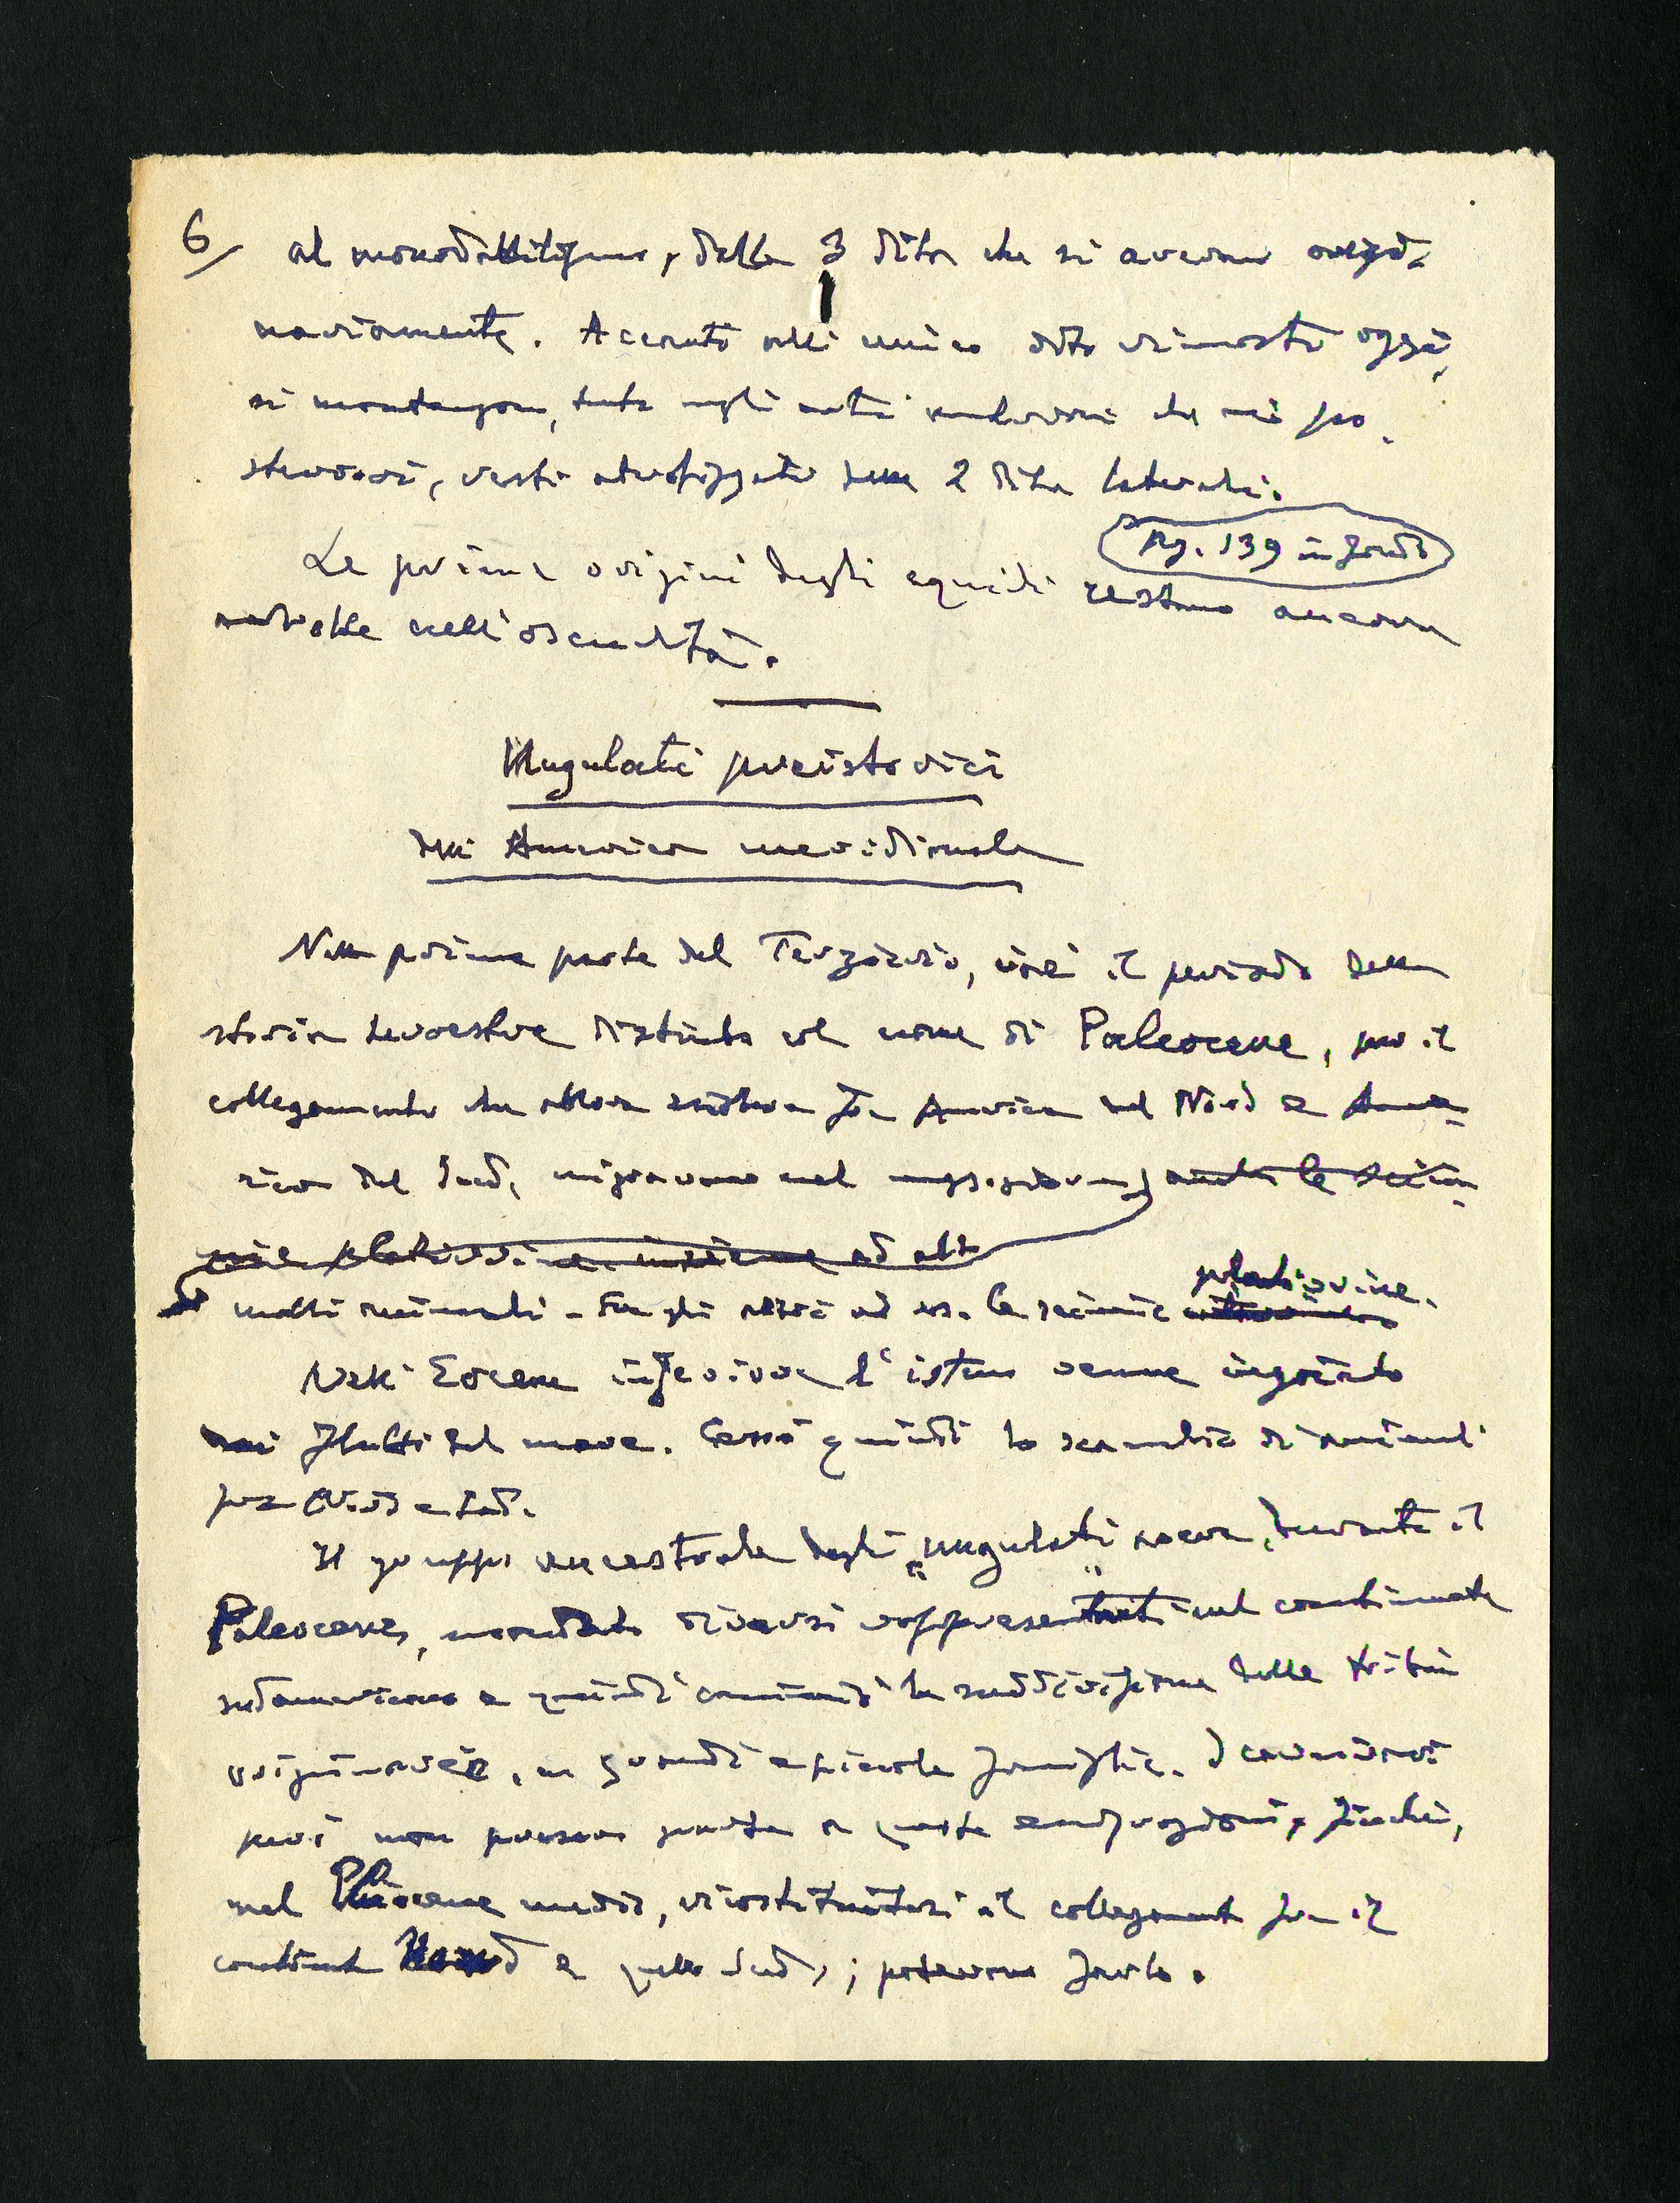 6/ al monodattilismo, dalle 3 dita che si avevano origi-
nariamente. Accanto all'unico dito rimasto oggi,
si mantengono, tanto negli arti anteriori che nei po-
steriori, resti atrofizzati delle 2 dita laterali.
Pag. 139 in fondo
Le prime origini degli equidi restano ancora
avvolte nell'oscurità.
Ungulati preistorici
dell'America meridionale
Nella prima parte del Terziario, cioè il periodo della
storia terrestre distinto col nome di Paleocene, per il
collegamento che allora esisteva fra America del Nord e Ame-
rica del Sud, migravano nel anche le scim-
mie platirrine insieme ad altri
molti animali - fra gli altri ad es. le scimmie platirrine.
Nell'Eocene inferiore l'istmo venne ingoiato
dai flutti del mare. Cessò quindi lo scambio di animali
fra Nord e Sud.
Il gruppo ancestrale degli "ungulati" aveva, durante il
Paleocene, mandato diversi rappresentanti nel continente
sudamericano e quindi cominciò la suddivisione delle tribù
originarie, in grandi e piccole famiglie. I carnivori
però non presero parte a queste finché,
nel Pliocene medio, ricostituitosi il collegamento fra il
continente Nord e quello Sud, potevano farlo.